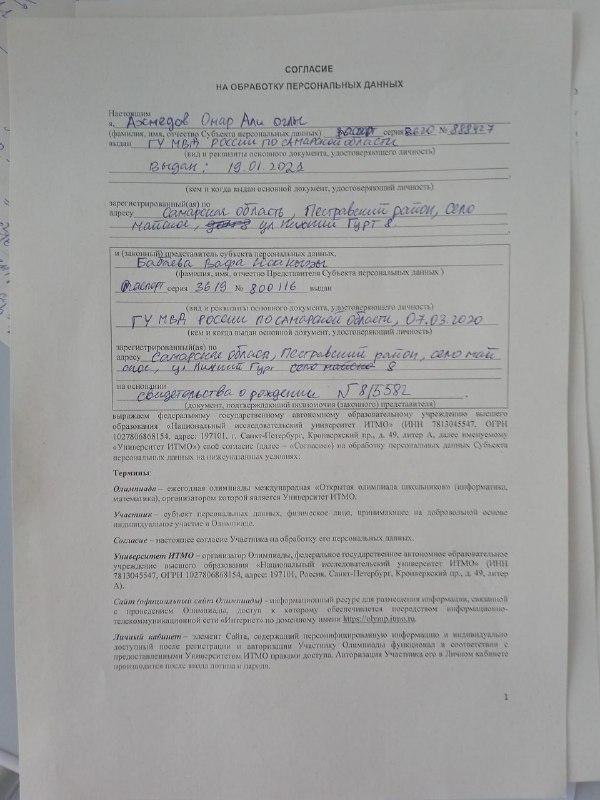 СОГЛАСИЕ
НА ОБРАБОТКУ ПЕРСОНАЛЬНЫХ ДАННЫХ
Настоящим
я, Ахмедов Омар Али оглы
(фамилия, имя, отчество Субъекта персональных данных) паспорт серия 3620 № 889427
выдан ГУ МВД РОССИИ ПО САМАРСКОЙ ОБЛАСТИ
(вид и реквизиты основного документа, удостоверяющего личность)
Выдан: 19.01.2021
(кем и когда выдан основной документ, удостоверяющий личность)
зарегистрированный(ая) по
адресу Самарская область, Пестравский район, село
Майское, ул Нижний Гурт 8
и (законный) представитель субъекта персональных данных,
Бабаева Вафа
(фамилия, имя, отчество Представителя Субъекта персональных данных )
Паспорт серия 3619 № 800116 выдан
(вид и реквизиты основного документа, удостоверяющего личность)
ГУ МВД РОССИИ ПО САМАРСКОЙ ОБЛАСТИ, 07.03.2020
(кем и когда выдан основной документ, удостоверяющий личность)
зарегистрированный(ая) по
адресу Самарская область, Пестравский район, село май
ское, ул Нижний Гурт 8
на основании
свидетельства о рождении № 815582
(документ, подтверждающий полномочия (законного) представителя)
выражаем федеральному государственному автономному образовательному учреждению высшего
образования «Национальный исследовательский университет ИТМО» (ИНН 7813045547, ОГРН
1027806868154, адрес: 197101, г. Санкт-Петербург, Кронверкский пр., д. 49, литер А, далее именуемому
«Университет ИТМО») своё согласие (далее – «Согласие») на обработку персональных данных Субъекта
персональных данных на нижеуказанных условиях:
Термины:
Олимпиада – ежегодная олимпиады международная «Открытая олимпиада школьников» (информатика,
математика), организатором которой является Университет ИТМО.
Участник – субъект персональных данных, физическое лицо, принимающее на добровольной основе
индивидуальное участие в Олимпиаде.
Согласие – настоящее согласие Участника на обработку его персональных данных.
Университет ИТМО – организатор Олимпиады, федеральное государственное автономное образовательное
учреждение высшего образования «Национальный исследовательский университет ИТМО» (ИНН
7813045547, ОГРН 1027806868154, адрес: 197101, Россия, Санкт-Петербург, Кронверкский пр., д. 49, литер
А).
Сайт (официальный сайт Олимпиады) – информационный ресурс для размещения информации, связанной
с проведением Олимпиады, доступ к которому обеспечивается посредством информационно-
телекоммуникационной сети «Интернет» по доменному имени https://olymp.itmo.ru.
Личный кабинет – элемент Сайта, содержащий персонифицированную информацию и индивидуально
доступный после регистрации и авторизации Участнику Олимпиады функционал в соответствии с
предоставленными Университетом ИТМО правами доступа. Авторизация Участника его в Личном кабинете
производится после ввода логина и пароля.
1